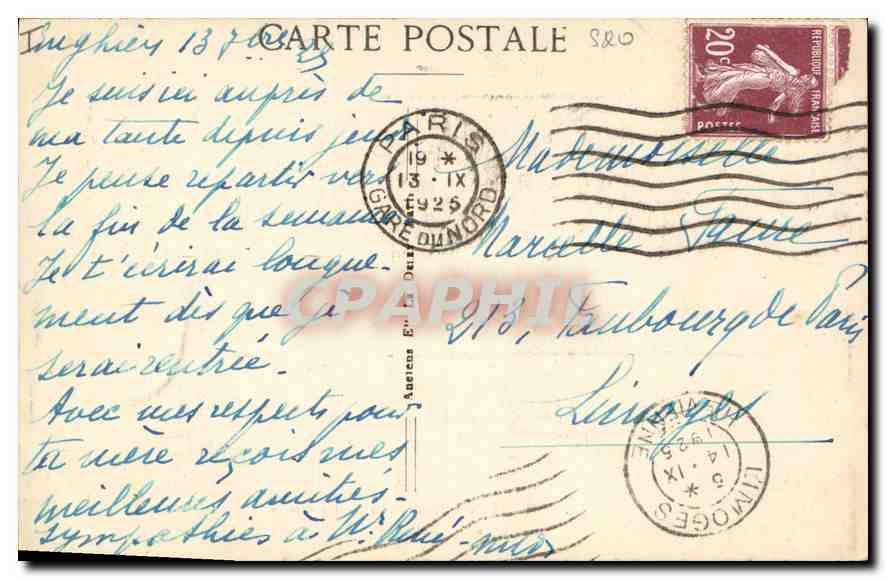 CARTE POSTALE
520
Enghien 13 7bre 25
Je suis ici auprès de
ma tante depuis jeudi
Je pense repartir vers
la fin de la semaine
Je t'écrirai longue-
ment dès que je
serai rentrée.
Avec mes respects pour
ta mère reçois mes
meilleures amitiés.
sympathies à Mr René
Mademoiselle
Marcelle Faure
213, Faubourg de Paris
Limoges
20c
REPUBLIQUE FRANÇAISE
POSTES
PARIS
19 *
13 · IX
1925
GARE DU NORD
LIMOGES
5 *
14 · IX
1925
Hte VIENNE
Anciens Etts
CPAPHIL